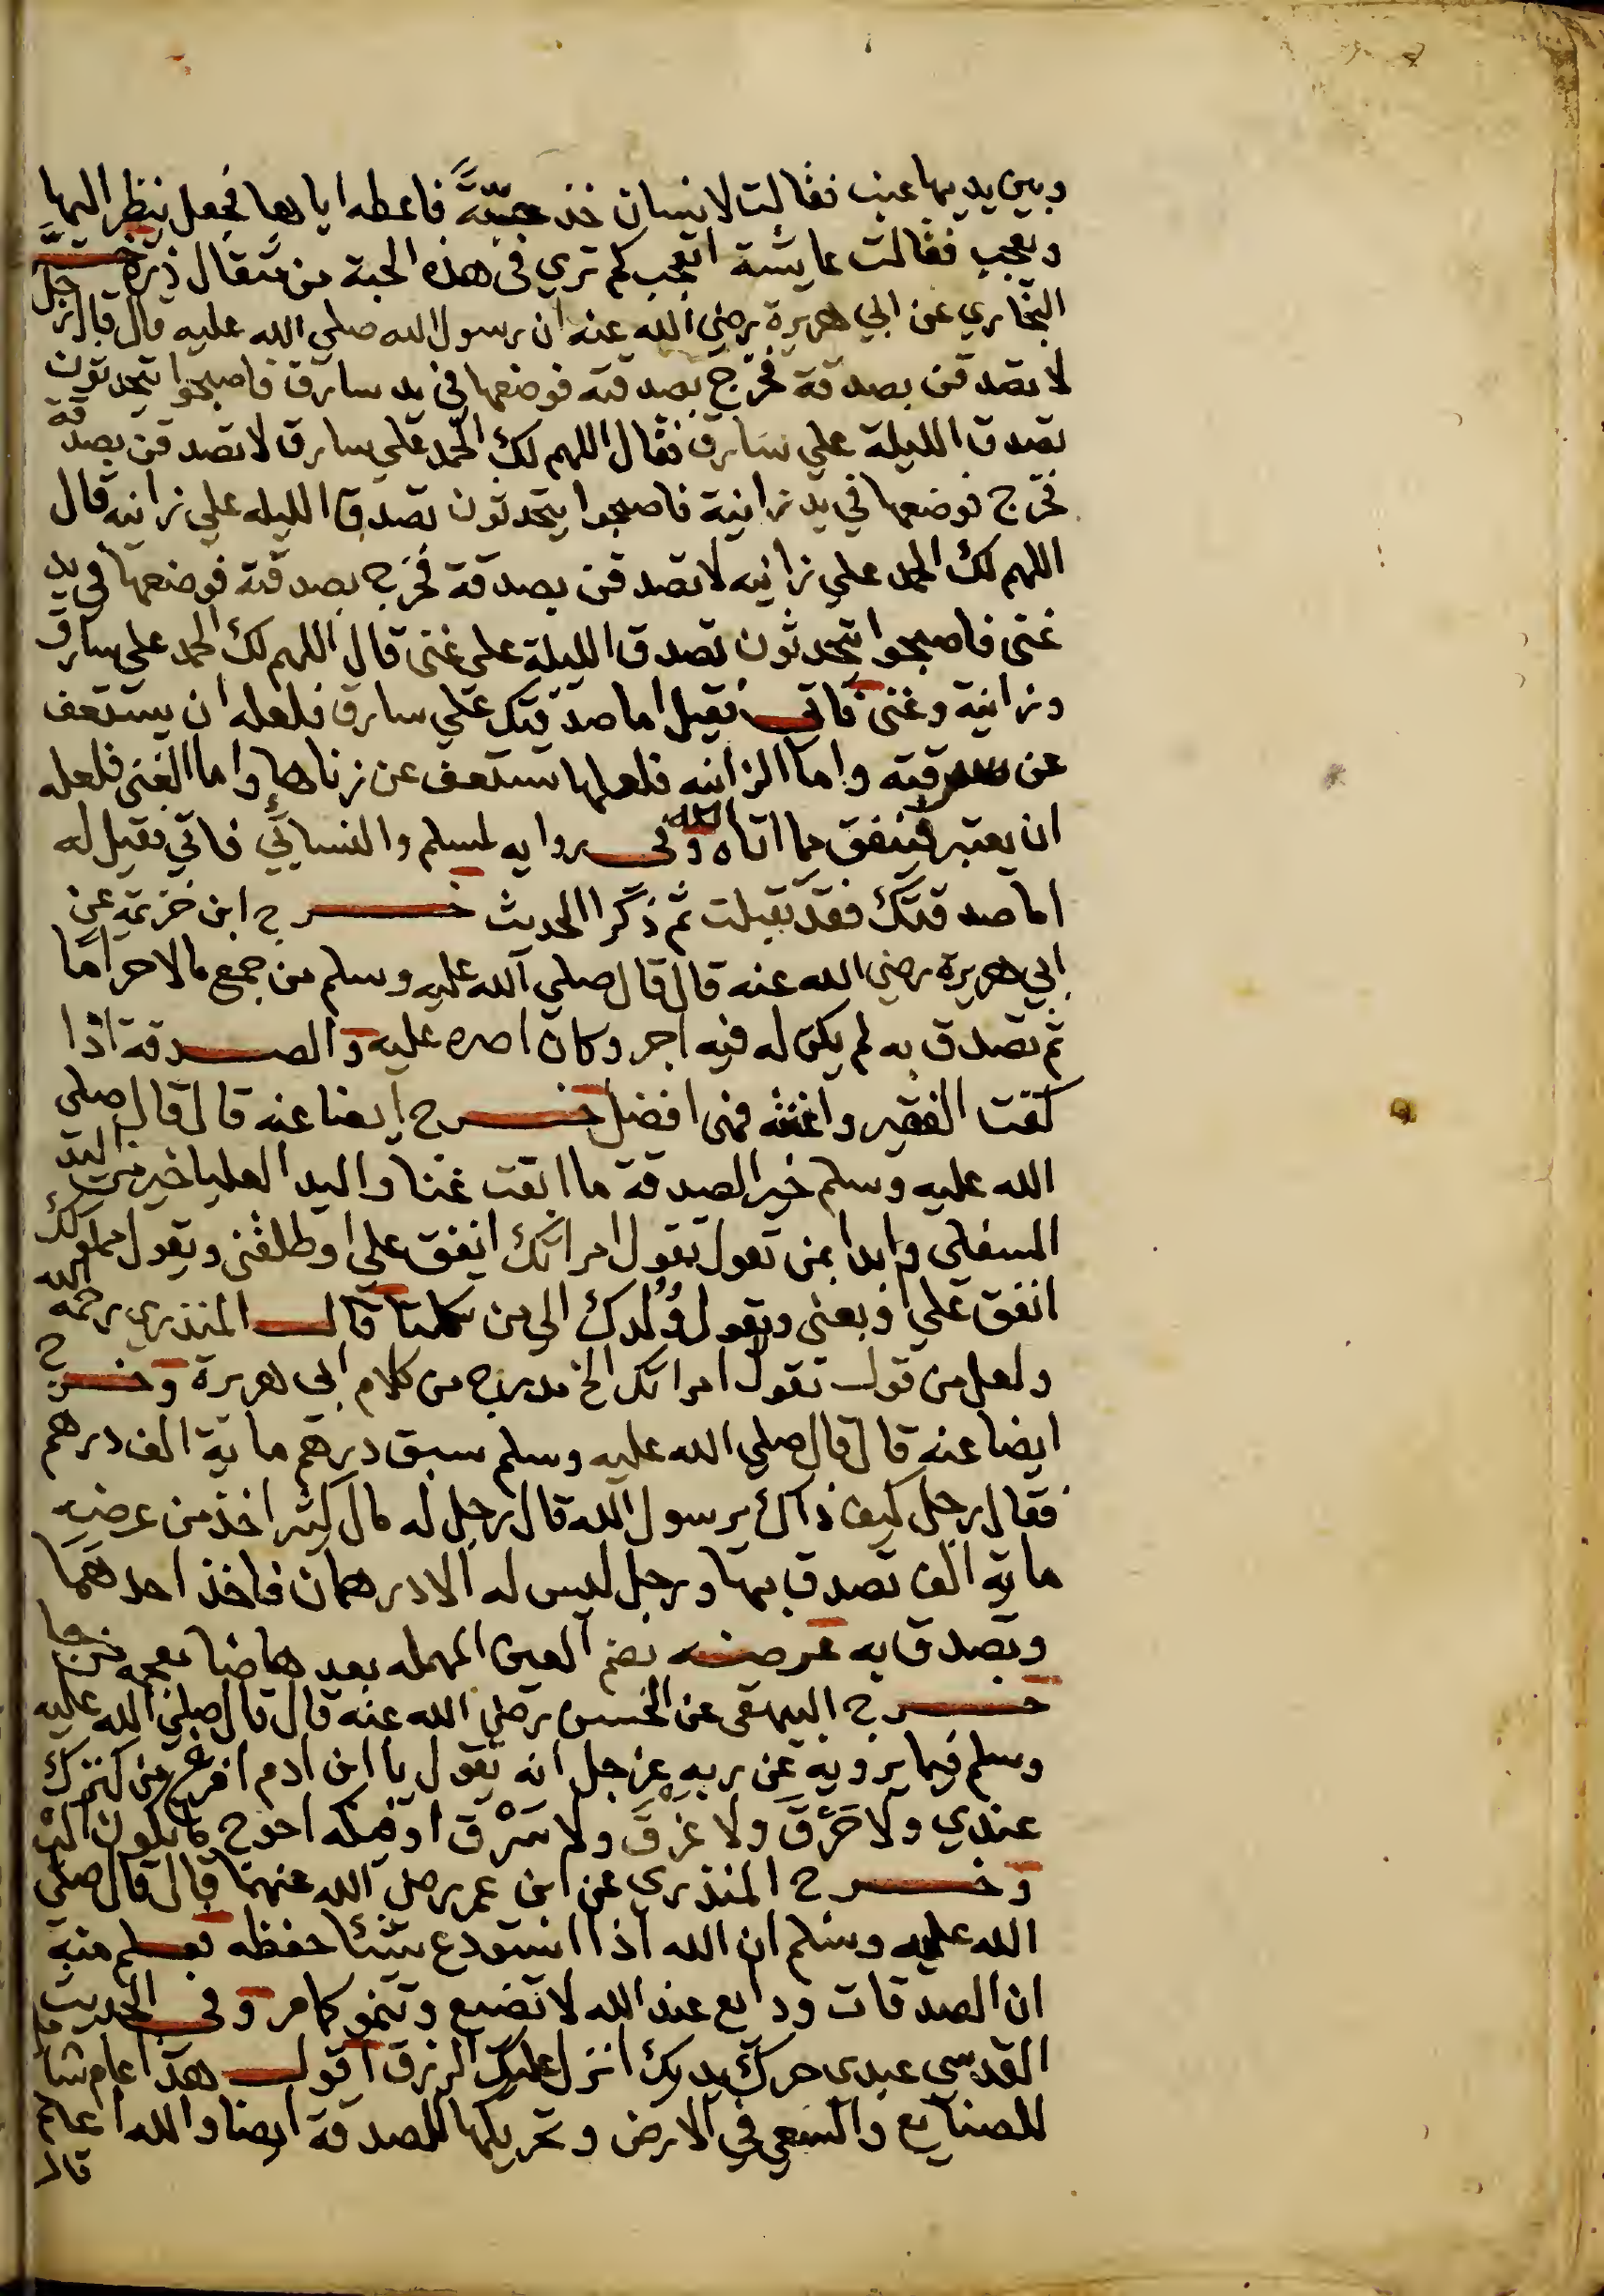 وبين يديها عنب فقالت لانسان خذ حبة فاعطه اياها فجعل ينظر اليها
ويعجب فقالت عايشة اتعجب كم تري في هذه الحبة من مثقال ذرة خرج
البخاري عن ابي هريرة رضي الله عنه ان رسول الله صلي الله عليه قال قال رجل
لا تصدقن بصدقة فخرج بصدقته فوضعها في يد سارق فاصبحوا يتحدثون
تصدق الليلة علي سارق فقال اللهم لك الحمد علي سارق لا تصدقن بصدقة
فخرج فوضعها في يد زانية فاصبحوا يتحدثون تصدق الليله علي زانيه قال
اللهم لك الحمد علي زانيه لا تصدقن بصدقة فخرج بصدقته فوضعها في يد
غنى فاصبحوا يتحدثون تصدق الليلة على غنى قال اللهم لك الحمد علي سارق
وزانية وغنى فاتى فقيل اما صدقتك علي سارق فلعله ان يستعف
عن سرقته واما الزانيه فلعلها تستعف عن زناها واما الغنى فلعله
ان يعتبر فينفق مما اتاه الله وفى روايه لمسلم والنسائي فاتي فقيل له
اما صدقتك فقد تقبلت ثم ذكر الحديث خرج ابن خزيمه عن
ابي هريرة رضي الله عنه قال قال صلي الله عليه وسلم من جمع مالا حراما
ثم تصدق به لم يكن له فيه اجر وكان اصره عليه والصدقة اذا
كفت الفقير واغنته فهى افضل خرج ايضا عنه قال قال صلي
الله عليه وسلم خير الصدقة ما ابقت غنا واليد العليا خير من اليد
السفلى وابدا بمن تعول تقول امراتك انفق علي او طلقنى ويقول مملوكك
انفق علي او بعنى ويقول ولدك الي من تكلنا قال المنذري رحمه الله
ولعل من قول تقول امراتك الخ مدرج من كلام ابى هريرة وخرج
ايضا عنه قال قال صلي الله عليه وسلم سبق درهم ماية الف درهم
فقال رجل كيف ذاك يرسول الله قال رجل له مال كثير اخذ من عرضه
ماية الف تصدق بها ورجل ليس له الا درهمان فاخذ احدهما
وتصدق به عرضه بضم العين المهمله بعدها ضا معجمه
خرج البيهقى عن الحسن رضي الله عنه قال قال صلي الله عليه
وسلم فيما يرويه عن ربه عز جل انه يقول يا ابن ادم افرغ من كنزك
عندي ولا حرق ولا غرق ولا سرق اوفيكه احوج ما تكون اليه
وخرج المنذري عن ابن عمر رضي الله عنهما قال قال صلي
الله عليه وسلم ان الله اذا استودع شيئا حفظه تعلم منه
ان الصدقات ودايع عند الله لا تضيع وتنمو كما مر وفى الحديث
القدسي عبدى حرك يديك انزل عليك الرزق اقول هذا عام
للصنايع والسعي في الارض وتحريكها للصدقة ايضا والله اعلم
قال